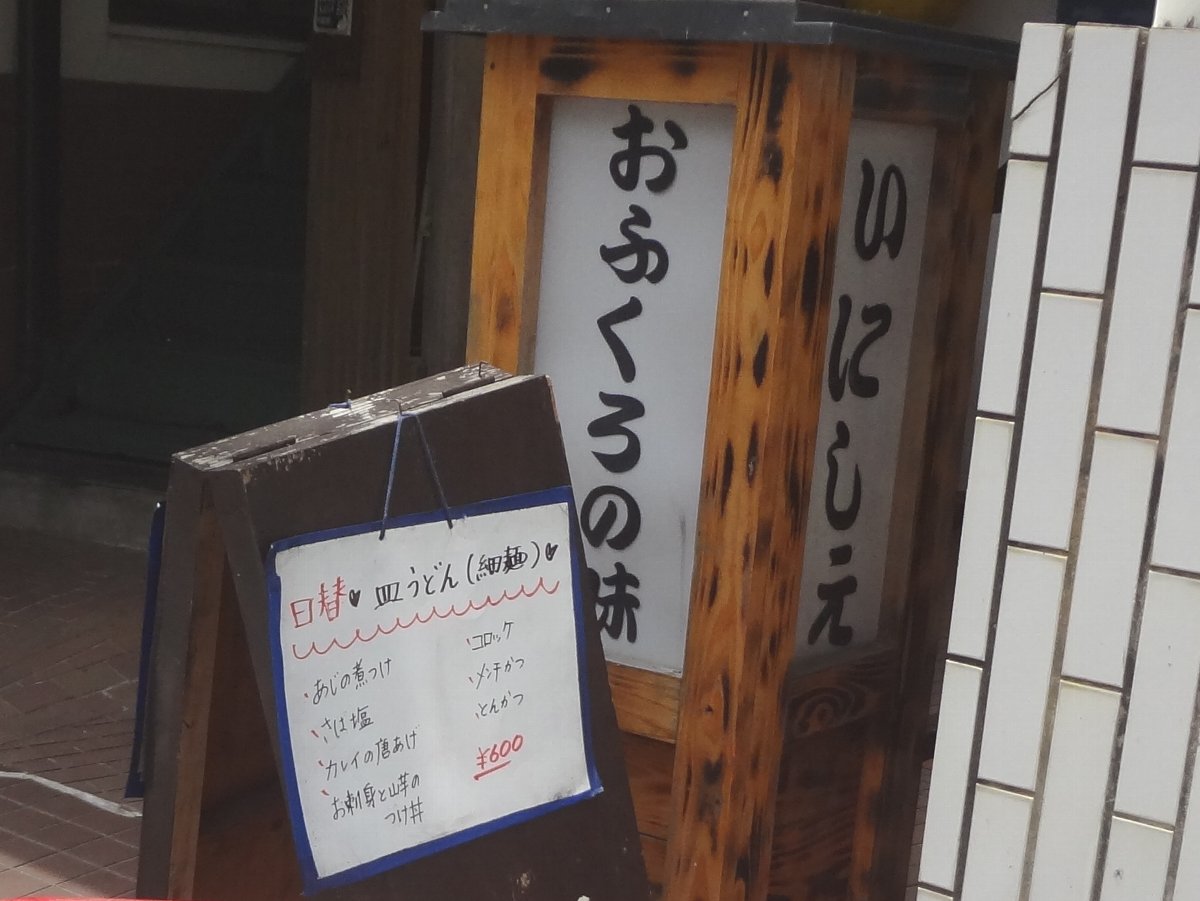 おふくろの味
いにしえ
日替♥皿うどん(細麺)♥
あじの煮つけ
さば塩
カレイの唐あげ
お刺身と山芋の
つけ丼
コロッケ
メンチかつ
とんかつ
¥600